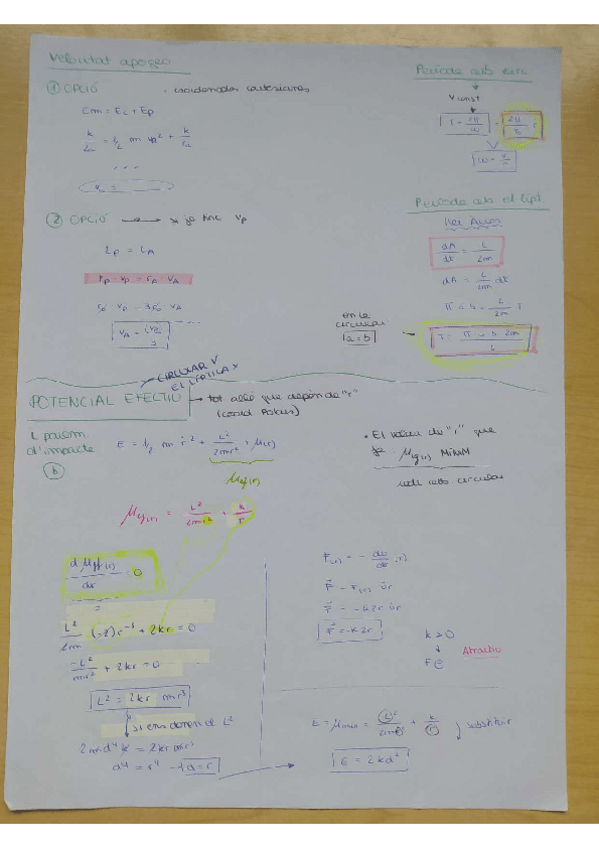 Velocitat apogeo
① OPCIÓ · coordenades cartesianes
Em = Ec + Ep
k/2a = 1/2 m vA² + k/rA
...
② OPCIÓ → si ja tinc vp
Lp = LA
rp · vp = rA · vA
Període orb circ
v const
T = 2π/ω = 2π/v r
ω = v/r
Període orb el·lípt
Llei Àrees
dA/dt = L/2m
dA = L/2m dt
π a b = L/2m T
T = π a b 2m/L
en la circular
a = b
CIRCULAR V
EL·LÍPTICA X
POTENCIAL EFECTIU → tot allò que depèn de "r"
(coord Polars)
L paràm
d'impacte
b
E = 1/2 m ṙ² + L²/2mr² + U(r)
Uef(r)
Uef(r) = L²/2mr² + k/r
• El valor de "r" que
fa Uef(r) MÍNIM
radi orb circular
d Uef(r)/dr = 0
L²/2m (-2) r⁻³ + 2kr = 0
-L²/mr³ + 2kr = 0
L² = 2kr mr³
si em donen el L²
2md⁴k = 2kr mr³
d⁴ = r⁴ → d = r
F(r) = - dU/dr (r)
F⃗ = F(r) ûr
F⃗ = -k2r ûr
F⃗ = -k2r
k > 0
↓
Atractiu
F ⊖
E = Umin = L²/2mr² + k/r substituir
E = 2kd²